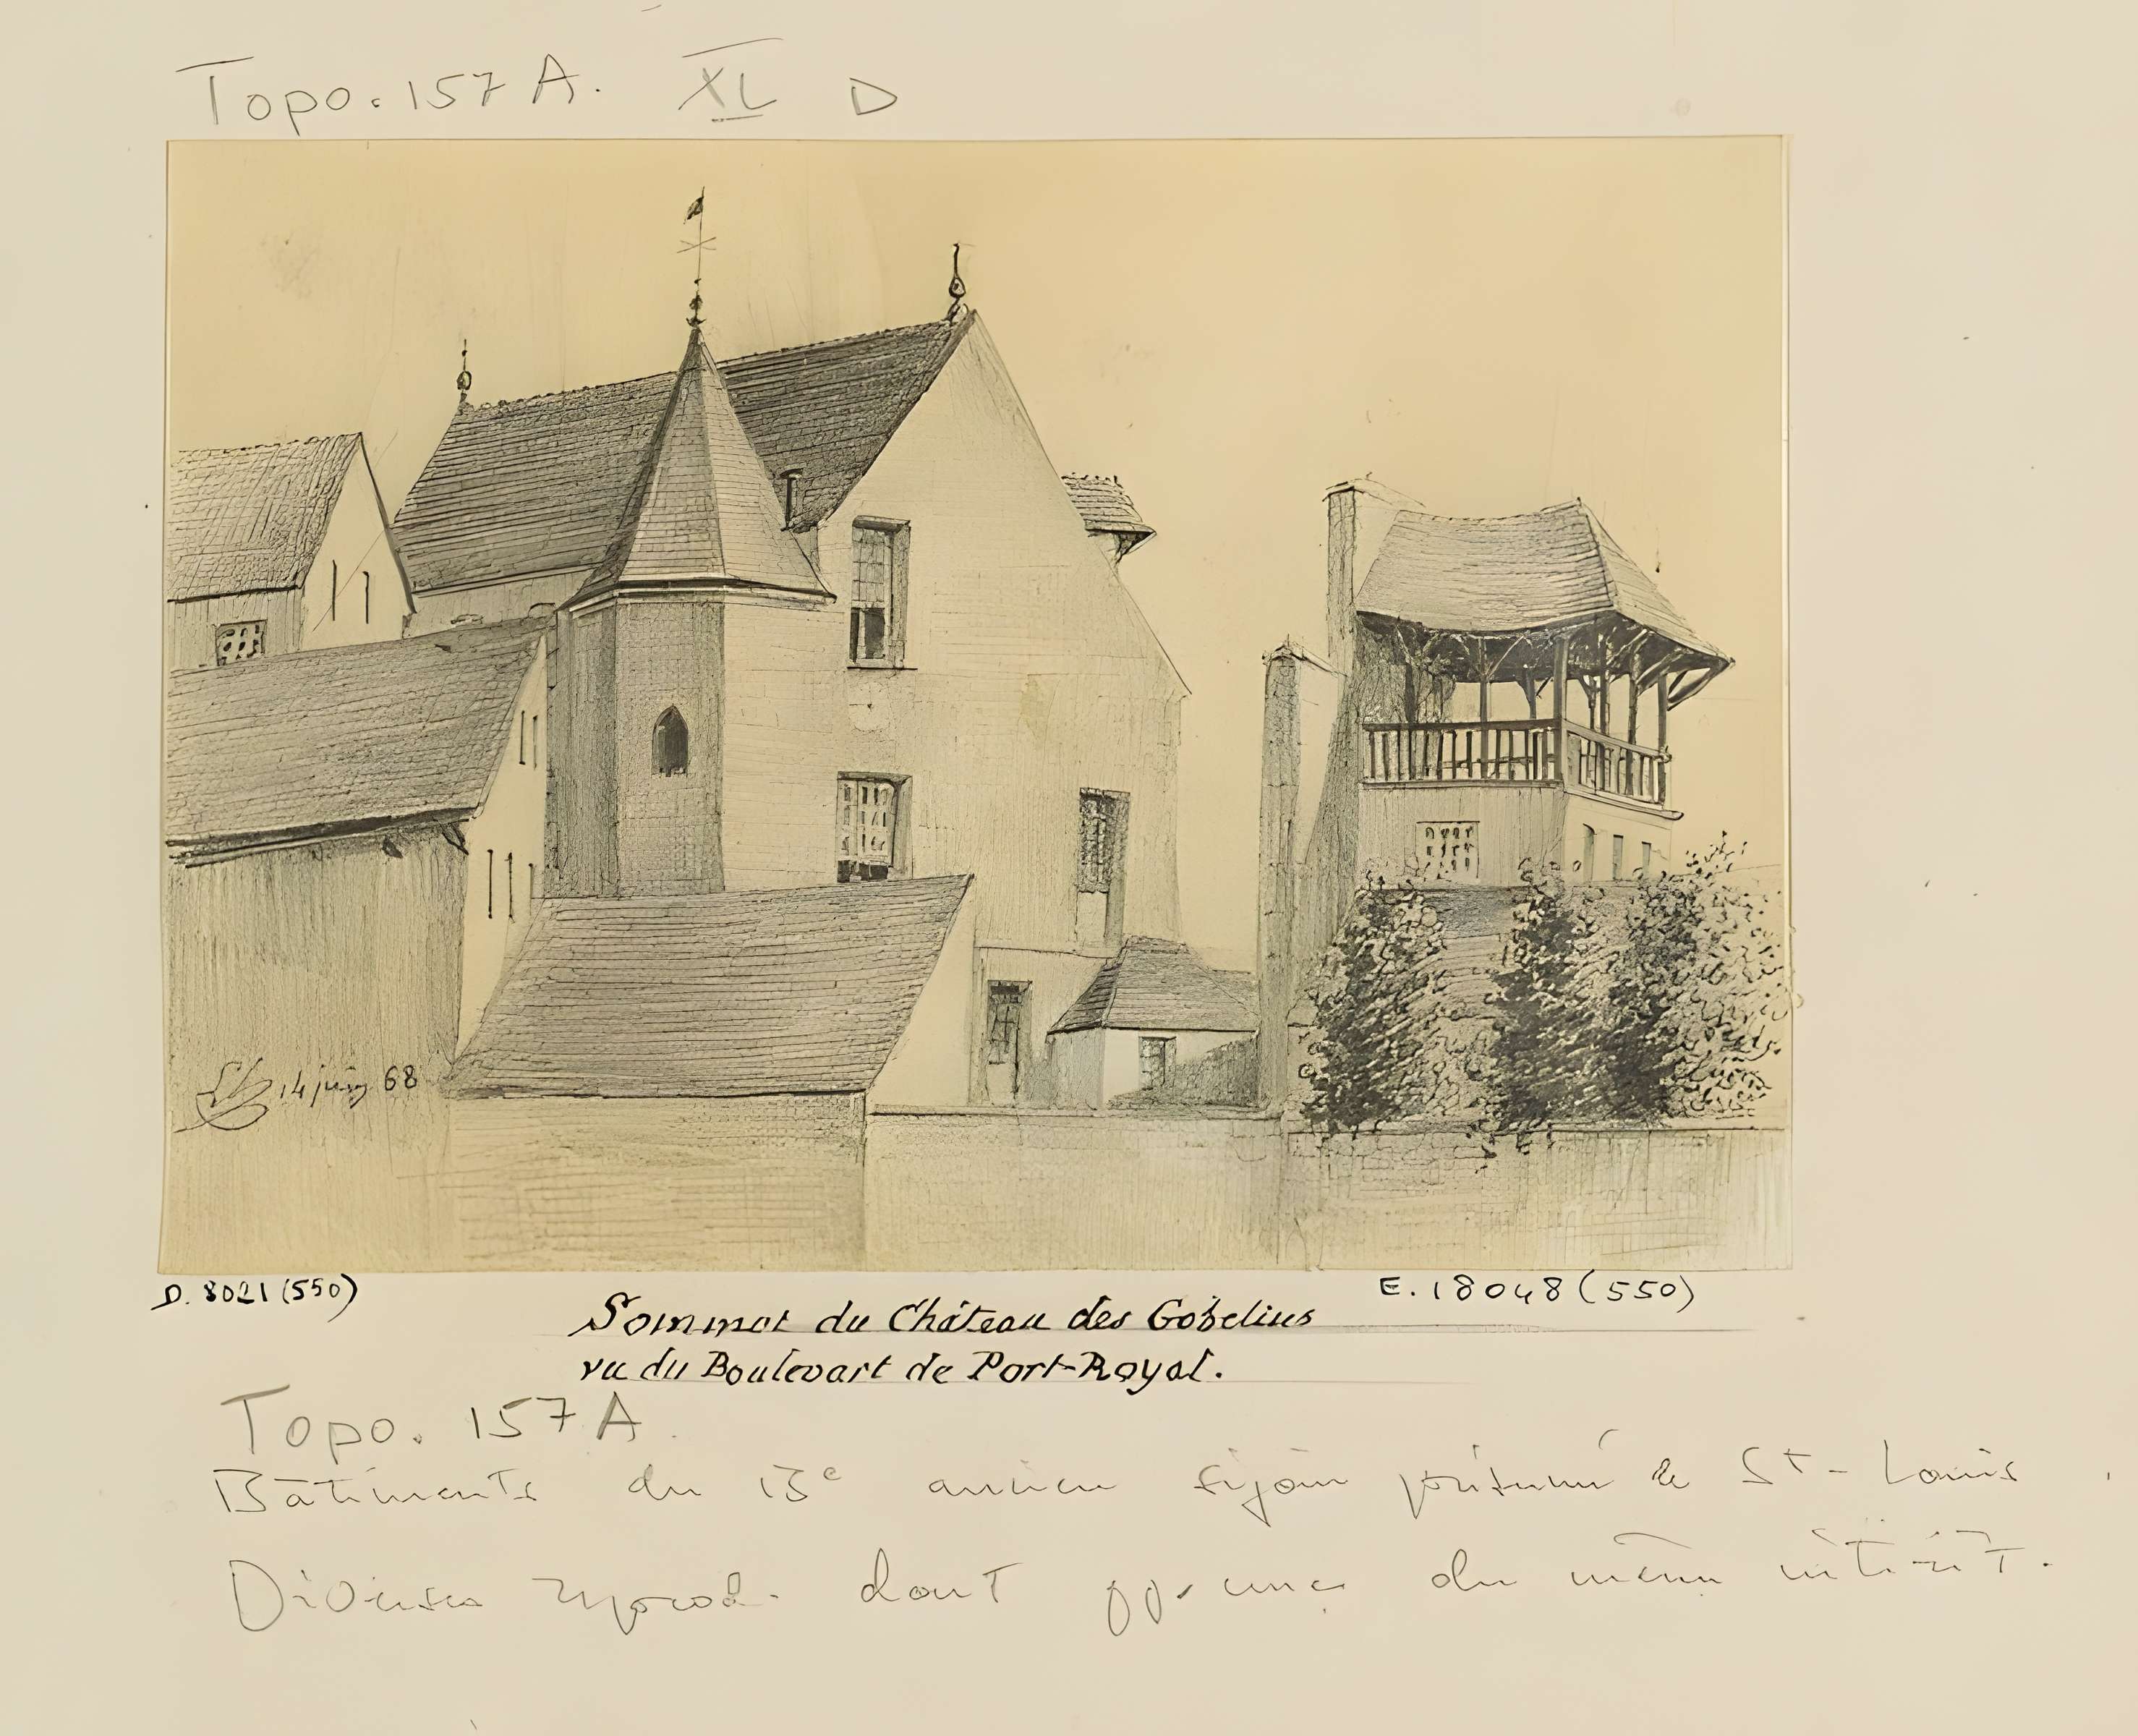 Topo. 157 A. XL D
14 juin 68
D. 8021 (550)
E. 18048 (550)
Sommet du Château des Gobelins
vu du Boulevart de Port-Royal.
Topo. 157 A
Bâtiments du 13e ancien séjour présumé de St-Louis
Diverses reprod. dont du même